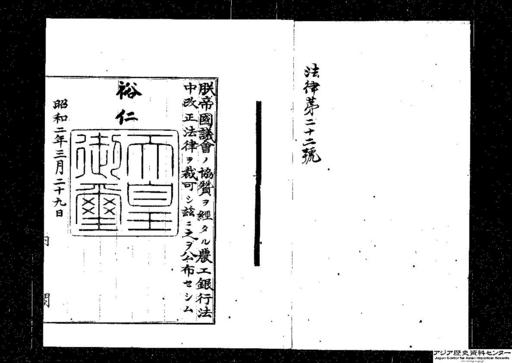 法律第二十二號
朕帝國議會ノ協贊ヲ經タル農工銀行法
中改正法律ヲ裁可シ茲ニ之ヲ公布セシム
裕仁
天皇御璽
昭和二年三月二十九日
内閣
アジア歴史資料センター
Japan Center for Asian Historical Records